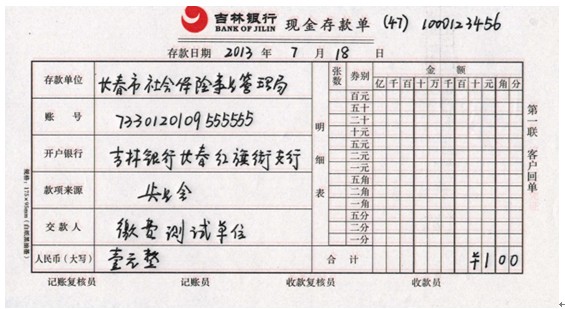 吉林银行 现金存款单 (47) 1000123456
BANK OF JILIN
存款日期 2013 年 7 月 18 日
存款单位 长春市社会保险事业管理局
账号 7330120109555555
开户银行 吉林银行长春红旗街支行
款项来源
交款人 缴费测试单位
人民币(大写) 壹元整
明细表
张数 券别 金额
亿 千 百 十 万 千 百 十 元 角 分
百元
五十
二十
十元
五元
二元
一元
五角
二角
一角
五分
二分
一分
合计 ¥100
第一联 客户回单
记账复核员 记账员 收款复核员 收款员